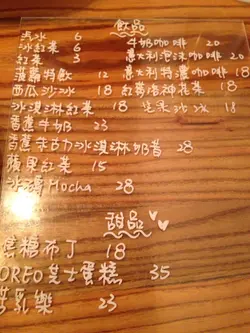 飲品
汽水 6
冰紅茶 6
紅茶 3
菠蘿特飲 12
西瓜沙冰 18
冰淇淋紅茶 18
香蕉牛奶 23
香蕉朱古力冰淇淋奶昔 28
蘋果紅茶 15
冰滴Mocha 28
牛奶咖啡 20
意大利泡沫咖啡 20
意大利特濃咖啡 18
紅莓洛神花茶 18
生果沙冰 18
甜品
焦糖布丁 18
OREO芝士蛋糕 35
乳樂 23